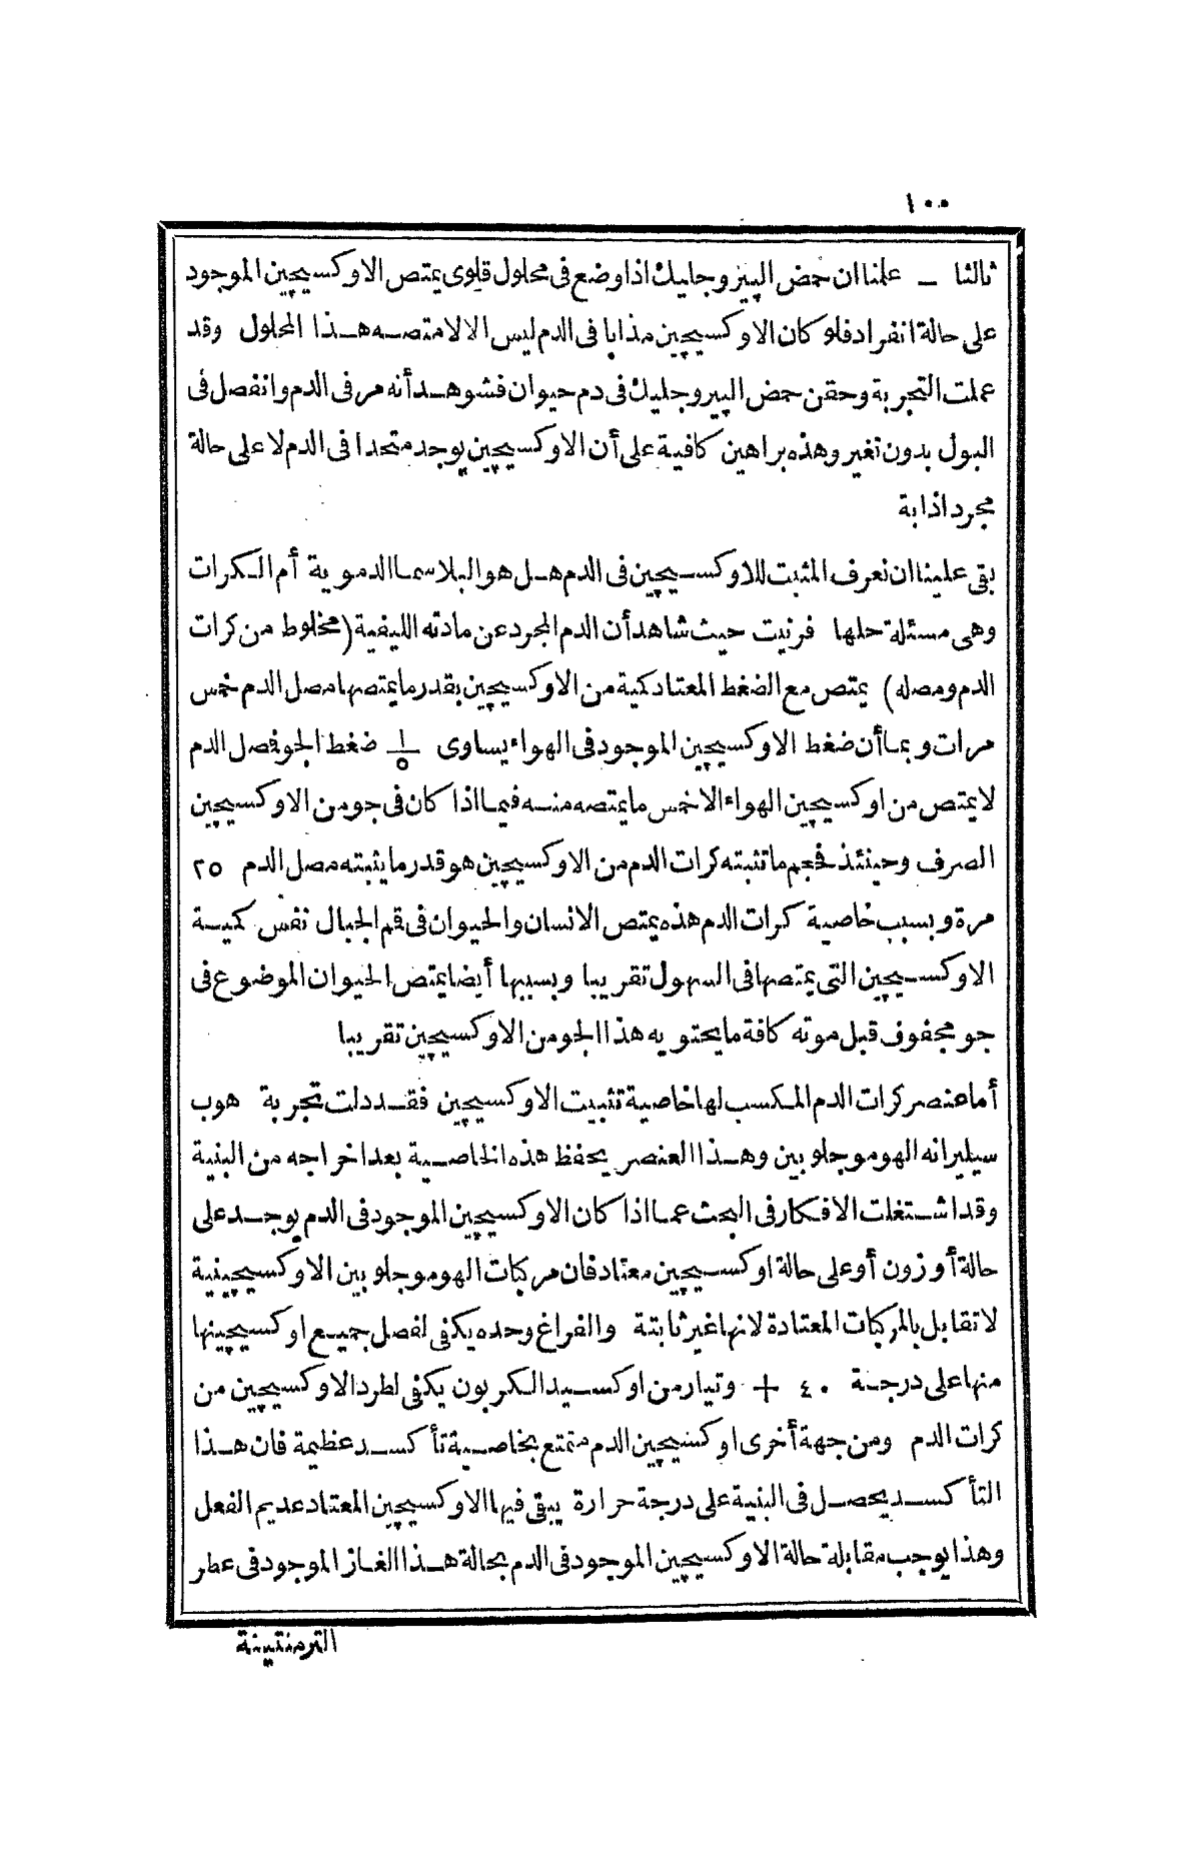 ١٠٠
ثالثا — علمنا ان حمض البيروجليك اذا وضع فى محلول قلوى يمتص الاوكسيچين الموجود
على حالة انفراد فلو كان الاوكسيچين مذابا فى الدم ليس الا لامتصه هذا المحلول وقد
عملت التجربة وحقن حمض البيروجليك فى دم حيوان فشوهد أنه مر فى الدم وانفصل فى
البول بدون تغير وهذه براهين كافية على أن الاوكسيچين يوجد متحدا فى الدم لا على حالة
مجرد اذابة
بقى علينا ان نعرف المثبت للاوكسيچين فى الدم هل هو البلاسما الدموية أم الكرات
وهى مسئلة حلها فرنيت حيث شاهد أن الدم المجرد عن مادته الليفية (مخلوط من كرات
الدم ومصله) يمتص مع الضغط المعتاد كمية من الاوكسيچين بقدر ما يمتصها مصل الدم خمس
مرات وبما أن ضغط الاوكسيچين الموجود فى الهواء يساوى ١/٥ ضغط الجو فصل الدم
لا يمتص من اوكسيچين الهواء الا خمس ما يمتصه منه فيما اذا كان فى جو من الاوكسيچين
الصرف وحينئذ فحجم ما تثبته كرات الدم من الاوكسيچين هو قدر ما يثبته مصل الدم ٢٥
مرة وبسبب خاصية كرات الدم هذه يمتص الانسان والحيوان فى قم الجبال نفس كمية
الاوكسيچين التى يمتصها فى السهول تقريبا وبسببها أيضا يمتص الحيوان الموضوع فى
جو مجفوف قبل موته كافة ما يحتويه هذا الجو من الاوكسيچين تقريبا
أما عنصر كرات الدم المكسب لها خاصية تثبيت الاوكسيچين فقد دلت تجربة هوب
سيلير انه الهوموجلوبين وهذا العنصر يحفظ هذه الخاصية بعد اخراجه من البنية
وقد اشتغلت الافكار فى البحث عما اذا كان الاوكسيچين الموجود فى الدم يوجد على
حالة أوزون أو على حالة اوكسيچين معتاد فان مركبات الهوموجلوبين الاوكسيچينية
لا تقابل بالمركبات المعتادة لانها غير ثابتة والفراغ وحده يكفى لفصل جميع اوكسيچينها
منها على درجة ٤٠ + وتيار من اوكسيد الكربون يكفى لطرد الاوكسيچين من
كرات الدم ومن جهة أخرى اوكسيچين الدم متمتع بخاصية تأكسد عظيمة فان هذا
التأكسد يحصل فى البنية على درجة حرارة يبقى فيها الاوكسيچين المعتاد عديم الفعل
وهذا يوجب مقابلة حالة الاوكسيچين الموجود فى الدم بحالة هذا الغاز الموجود فى عطر
الترمنتينة